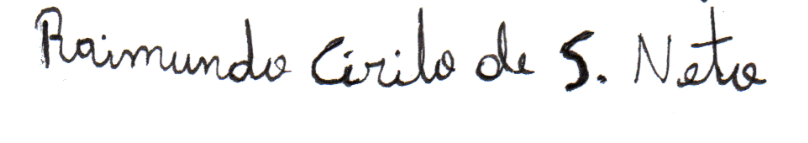 Raimundo Cirilo de S. Neto